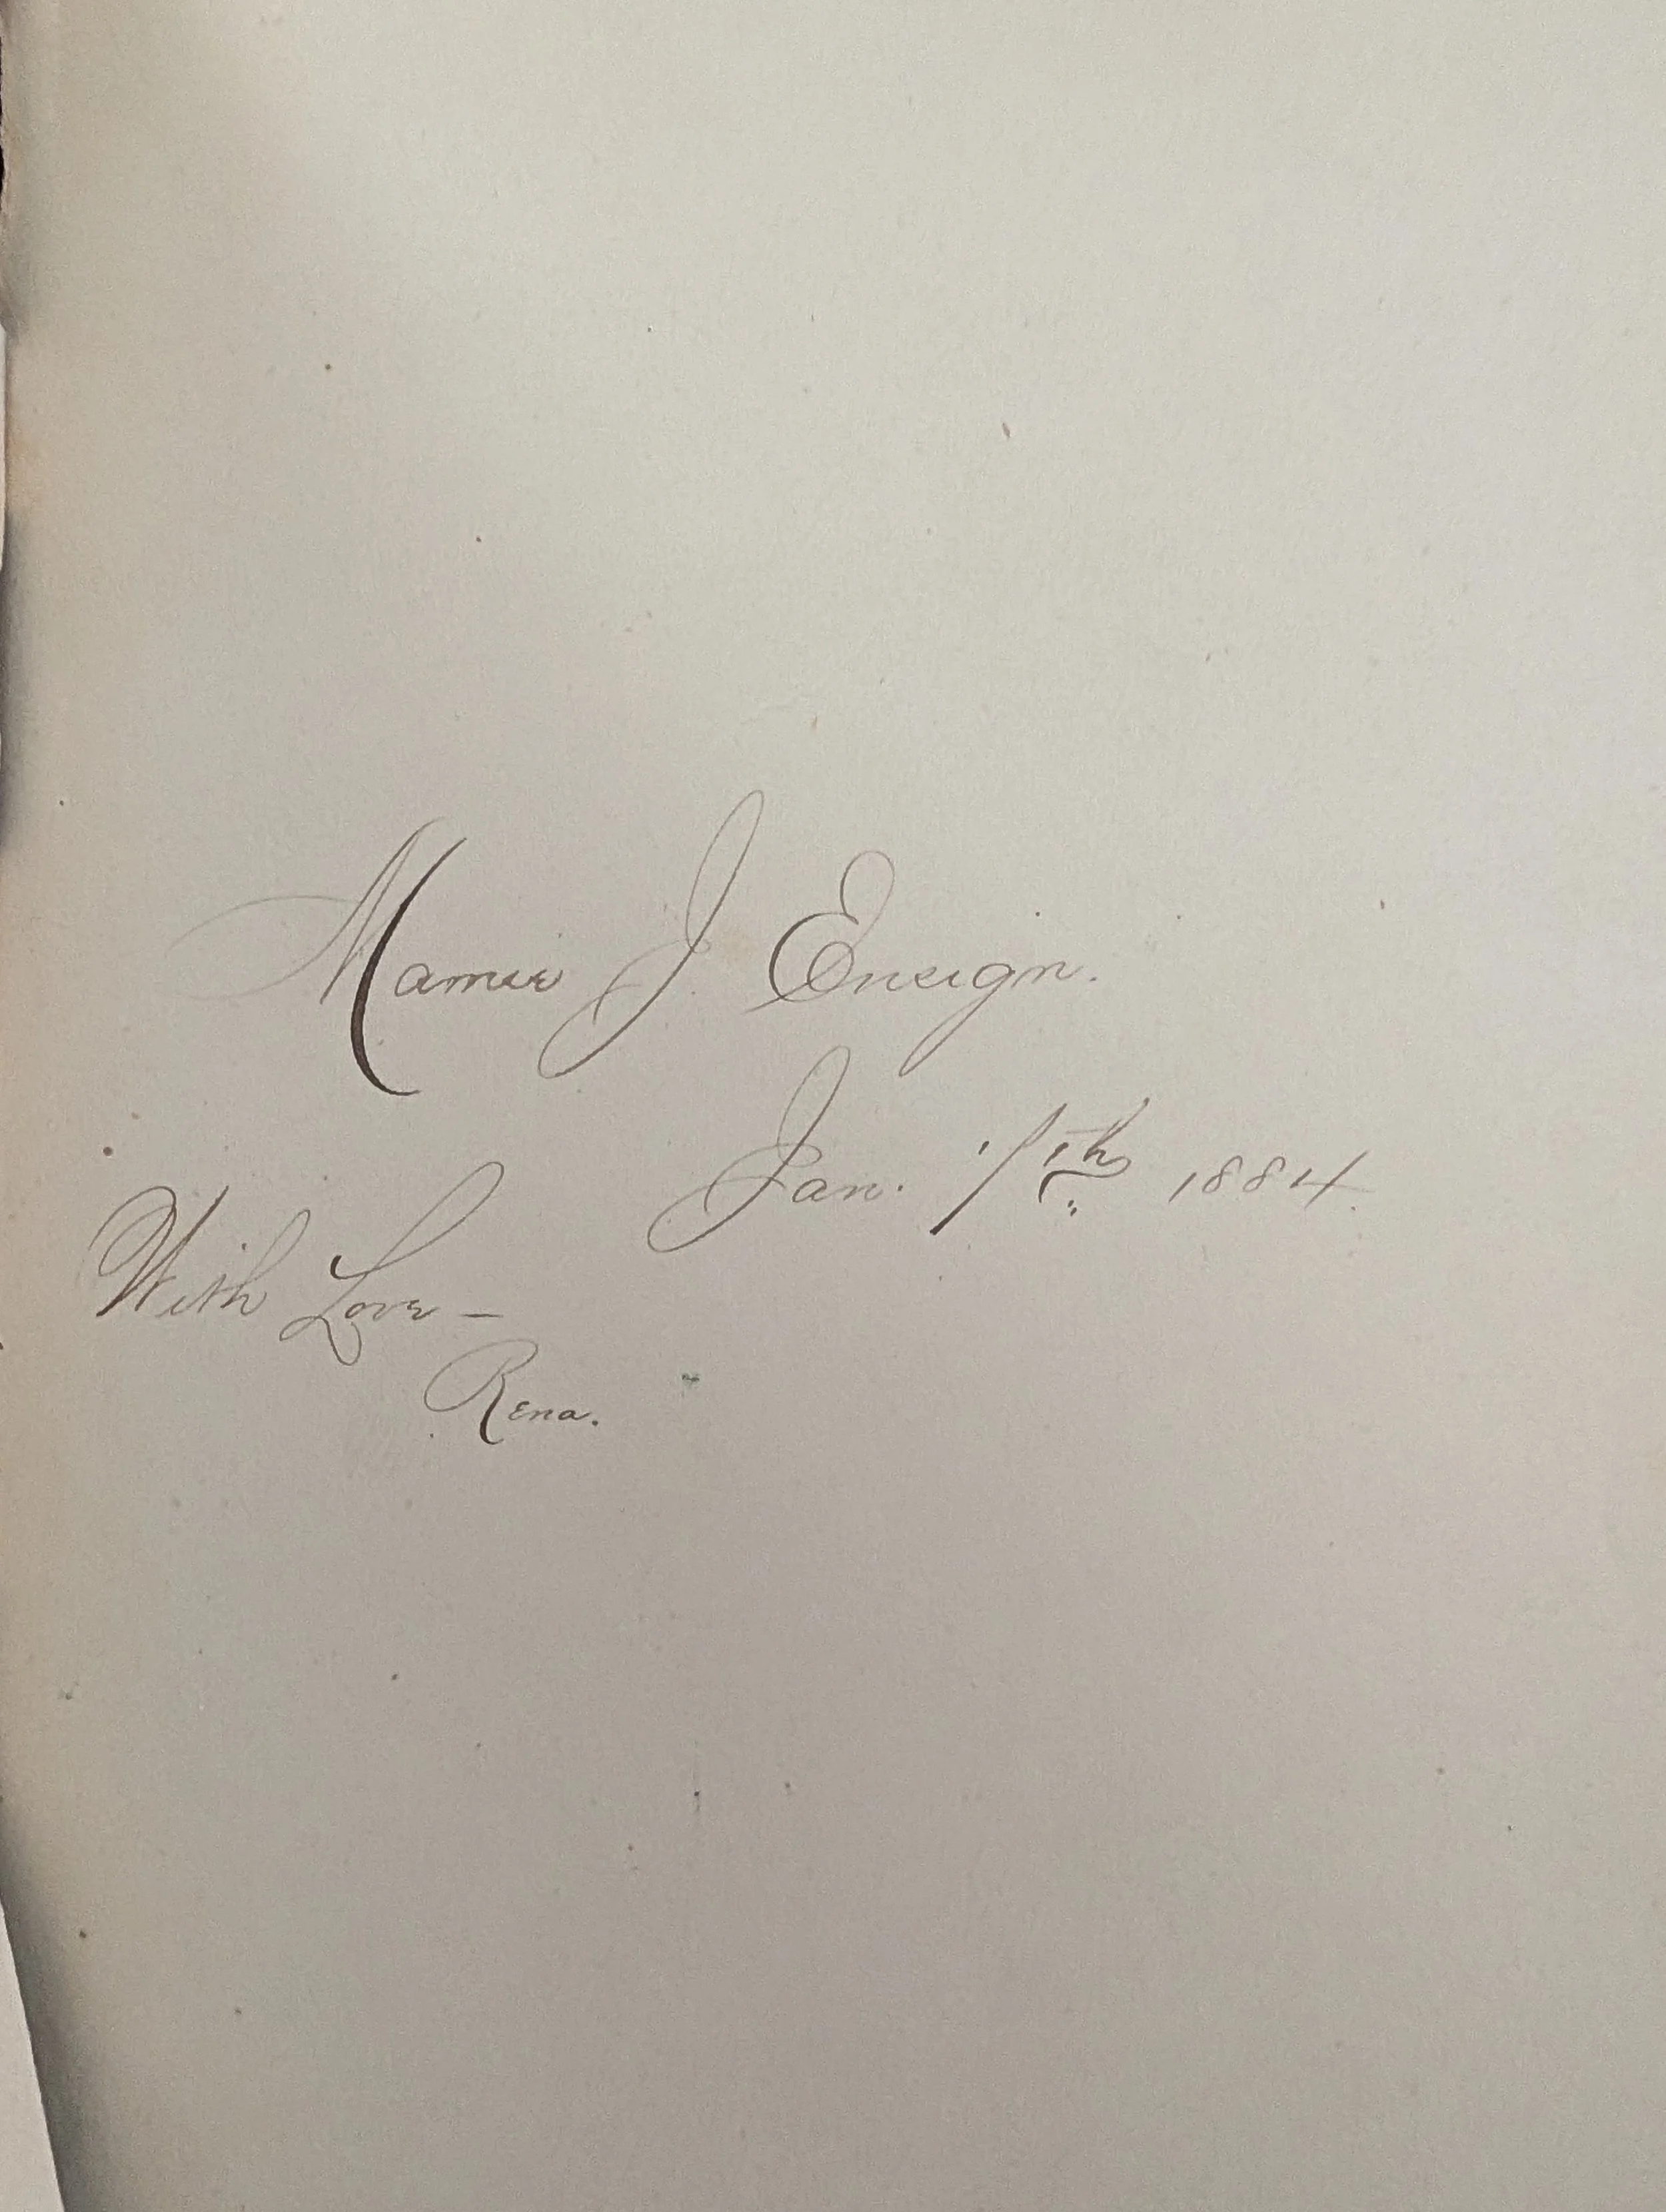 Mamie J. Ensign.
Jan. 7th 1884.
With Love –
Rena.